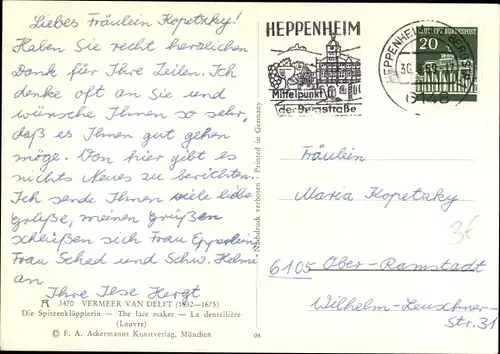 Liebes Fräulein Kopetzky!
Haben Sie recht herzlichen
Dank für Ihre Zeilen. Ich
denke oft an Sie und
wünsche Ihnen so sehr,
daß es Ihnen gut gehen
möge. Von hier gibt es
nichts Neues zu berichten.
Ich sende Ihnen viele liebe
Grüße, meinen Grüßen
schließen sich Frau Epperlein
Frau Sched und Schw. Helmi
an
Ihre Ilse Hergt
3470 VERMEER VAN DELFT (1632—1675)
Die Spitzenklöpplerin — The lace maker — La dentellière
(Louvre)
© F. A. Ackermanns Kunstverlag, München
Nachdruck verboten - Printed in Germany
HEPPENHEIM
Mittelpunkt
der Bergstraße
HEPPENHEIM
6148
DEUTSCHE BUNDESPOST
20
Fräulein
Maria Kopetzky
6105 Ober-Ramstadt
Wilhelm-Leuschner-
Str. 31